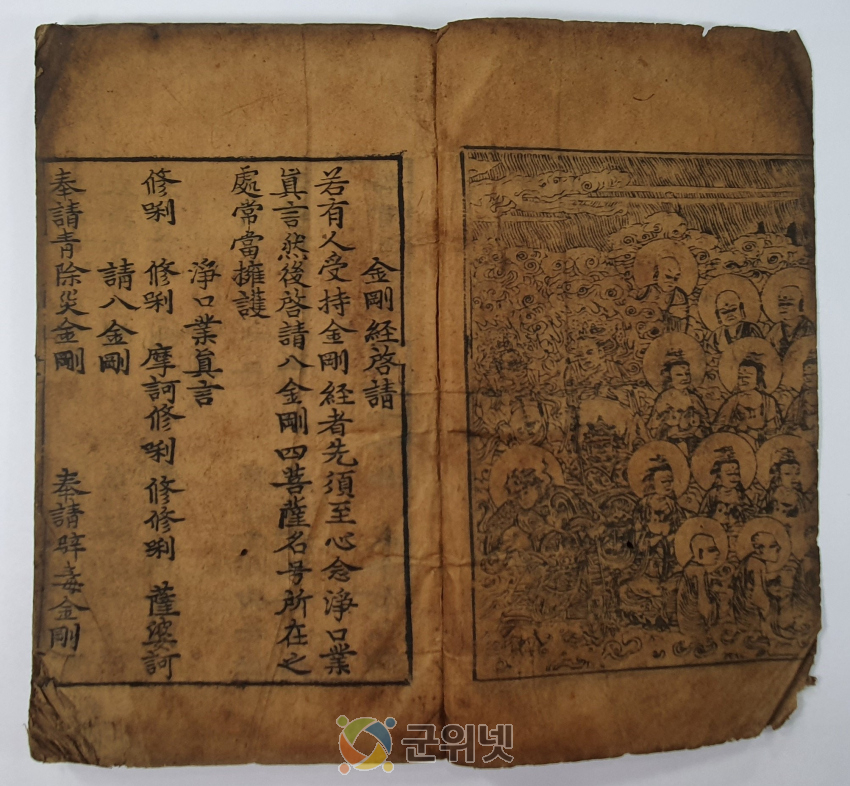 金剛經啓請
若有人受持金剛經者先須至心念淨口業
眞言然後啓請八金剛四菩薩名号所在之
處常當擁護
淨口業眞言
修唎 修唎 摩訶修唎 修修唎 薩婆訶
請八金剛
奉請青除災金剛 奉請辟毒金剛
군위넷